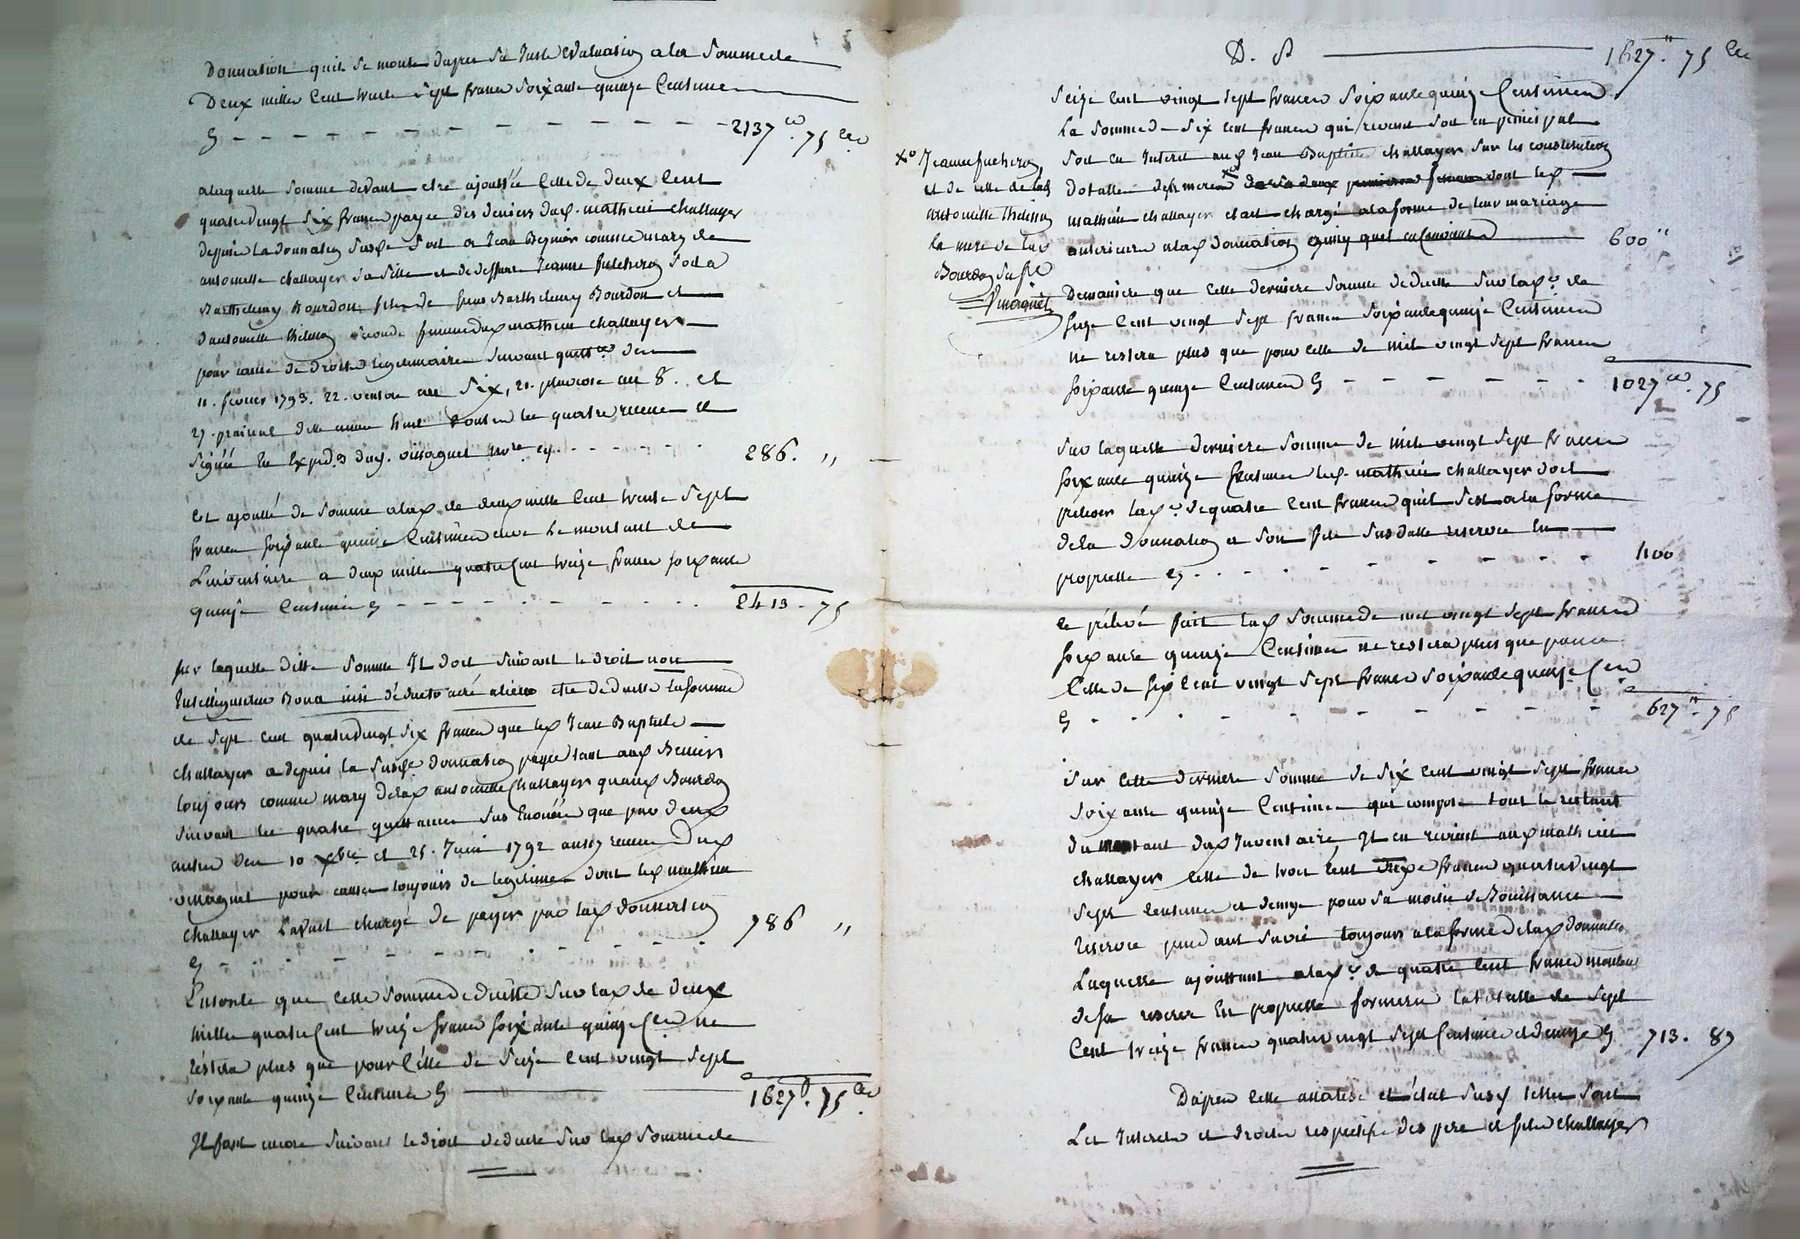 Donnation quil se monte dapres sa Juste Evaluation a la Somme de
Deux mille Cent trente Sept francs Soixante quinze Centimes
2137 75
a laquelle Somme devant etre ajoutée Celle de deux Cent
quatre vingt Six francs payée des deniers dud. mathieu challayer
depuis La donnation Susd. Soit a Jean Begnier comme mary de
antoinette challayer Sa fille et de deffunte Jeanne fulchero Soit a
Barthelemy Bourdon fils de feu Barthelemy Bourdon et
dantoinette thelisson seconde femme dud mathieu challayer
pour cause de droits legitimaires Suivant quittces des
11. fevrier 1793. 22. ventose an Six, 21. pluviose an 8. et
27. prairial de la meme annee toutes les quatre recues et
Signée En Expedon dud. not.re cy 286. ,,
Cet ajoutté de Somme a lad. de deux mille Cent trente Sept
francs Soixante quinze Centimes eleve Le montant de
Linventaire a deux mille quatre Cent treize francs Soixante
quinze Centimes cy 2413 - 75
Sur laquelle ditte Somme Il doit Suivant le droit non
Intelliguntur Bona nisi deducto aere alieno etre deduitte la Somme
de Sept Cent quatre vingt Six francs que led. Jean Baptiste
challayer a depuis la Susd.e donnation payée tant aud. Begnier
toujours comme mary de lad antoinette Challayer quaud. Bourdon
Suivant les quatre quittances Sus Enoncée que par deux
autres des 10 xbre et 25. Juin 1792 aussy recues dud
pour cause toujours de legitimes dont led mathieu
challayer Lavait chargé de payer par lad donnation
cy 786 ,,
Ensorte que Cette Somme deduitte Sur lad. de deux
mille quatre Cent treize francs Soixante quinze C.es ne
restera plus que pour Celle de Seize Cent vingt Sept
Soixante quinze Centimes cy 1627. 75
Il faut encore Suivant le droit deduire Sur lad Somme de
D. P. 1627. 75
Seize Cent vingt Sept francs Soixante quinze Centimes
La Somme de Six Cent francs qui revient Soit en principal
Soit en Interet aud Jean Baptiste challayer Sur les constitutions
dotalles dont led.
mathieu challayer etait chargé a la forme de leur mariage
anterieur a lad donnation 600
xo Jeanne fulchero
et de celle de lad
antoinette thelisson
la mere dud
Bourdon
De maniere que Cette derniere Somme deduitte Sur lad.e de
Seize Cent vingt Sept francs Soixante quinze Centimes
ne restera plus que pour Celle de mil vingt Sept francs
Soixante quinze Centimes cy 1027. 75
Sur laquelle derniere Somme de mil vingt Sept francs
Soixante quinze Centimes led. mathieu challayer doit
prélever lad.e de quatre Cent francs quil Sest a la forme
de la donnation a Son fils Susdatte reservée En
propriette cy 400
Ce prélevé fait lad Somme de mil vingt Sept francs
Soixante quinze Centimes ne restera plus que pour
Celle de Six Cent vingt Sept francs Soixante quinze C.es
cy 627. 75
Sur Cette derniere Somme de Six Cent vingt Sept francs
Soixante quinze Centimes qui compose tout le restant
du montant dud Inventaire, Il en revient aud mathieu
challayer Celle de trois Cent treize francs quatre vingt
Sept Centimes et demy pour Sa moitié de Jouissance
reservée pendant Sa vie toujours a la forme de lad donnation
Laquelle ajouttant a lad.e de quatre Cent francs montant
de Sa reserve En propriette formera la totalle de Sept
Cent treize francs quatre vingt Sept Centimes et demy cy 713. 87
Dapres Cette analise et état Susd. telles Sont
Les Interets et droits respectifs des pere et fils challayer